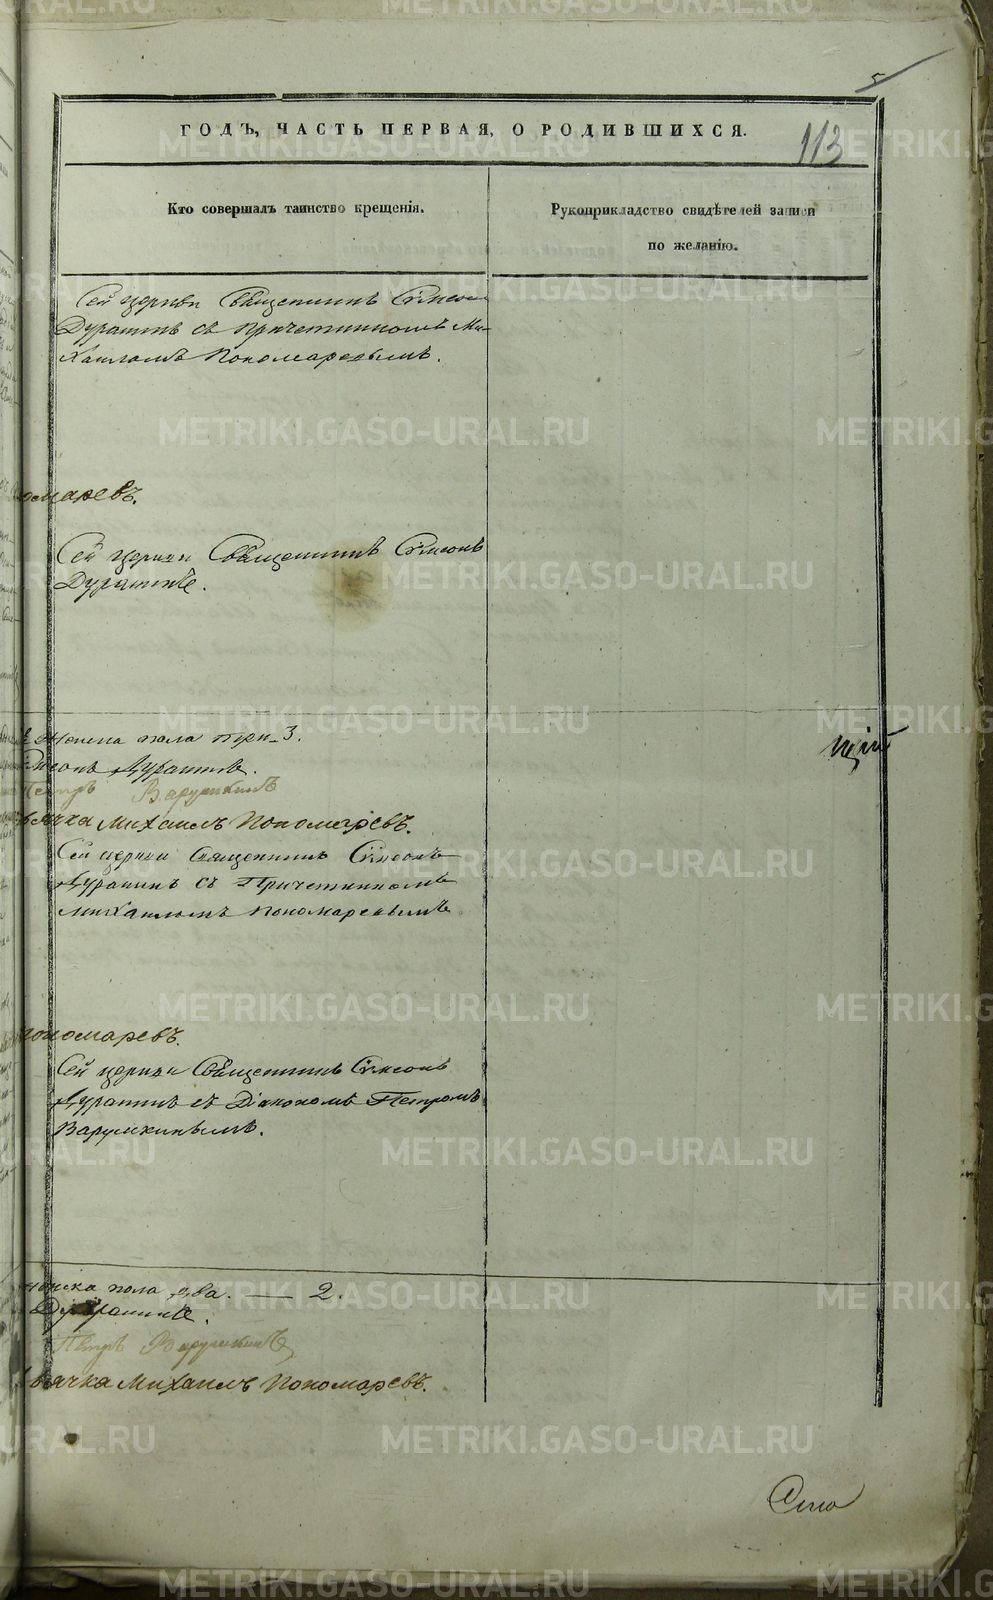 5
ГОДЪ, ЧАСТЬ ПЕРВАЯ, О РОДИВШИХСЯ.
113
Кто совершалъ таинство крещенія.
Рукоприкладство свидѣтелей записи
по желанію.
Сей церкви Священникъ Симеонъ
Дурагинъ съ Причетникомъ Ми-
хаиломъ Пономаревымъ.
омаревъ.
Сей церкви Священникъ Симеонъ
Дурагинъ.
женска пола три 3.
Симеонъ Дурагинъ.
Петръ Варушкинъ
ячка Михаилъ Пономаревъ.
Сей церкви Священникъ Симеонъ
Дурагинъ съ Причетникомъ
Михаиломъ Пономаревымъ
пономаревъ.
Сей церкви Священникъ Симеонъ
Дурагинъ съ Діакономъ Петромъ
Варушкинымъ.
женска пола два. — 2.
Дурагинъ.
Петръ Варушкинъ
ячка Михаилъ Пономаревъ.
щій
METRIKI.GASO-URAL.RU